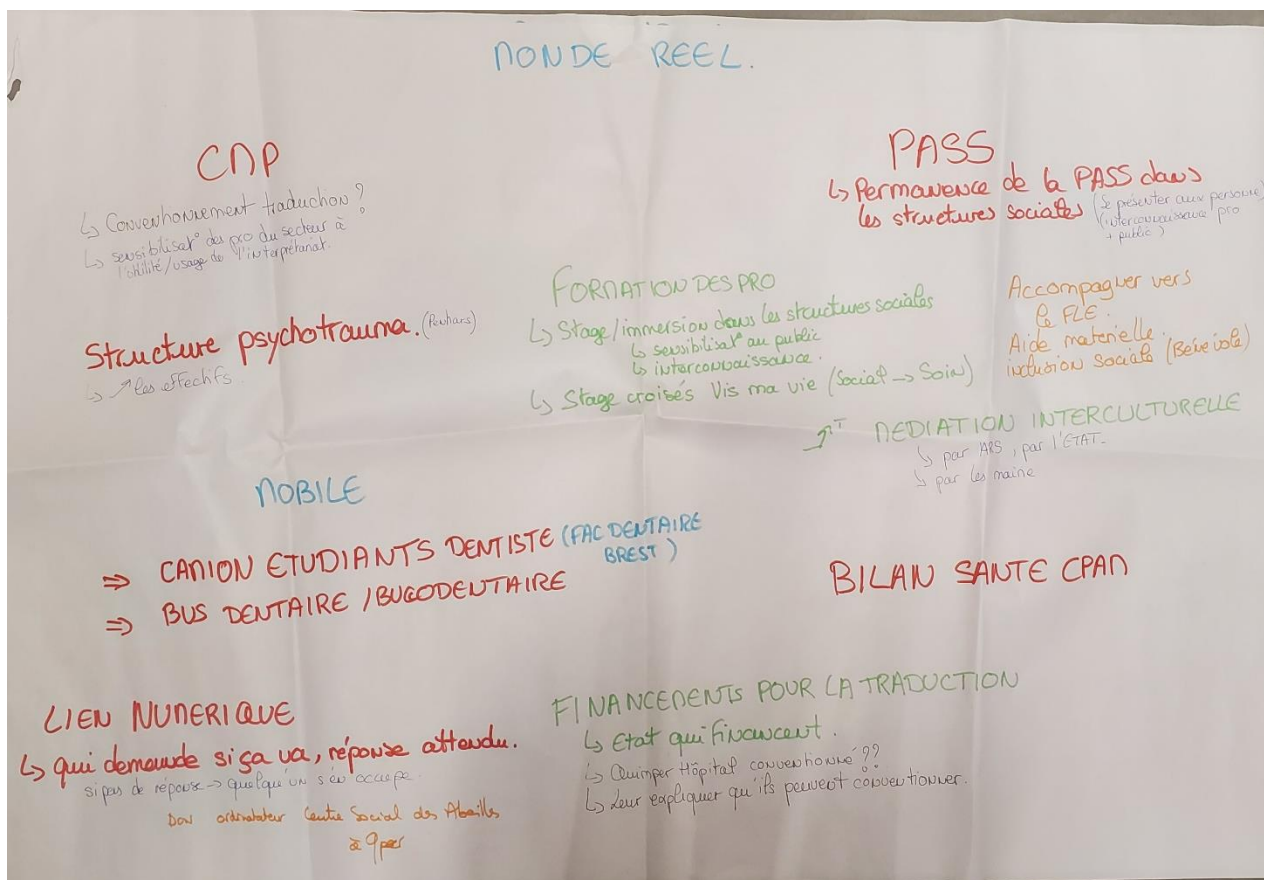 MONDE REEL.
CMP
↳ Conventionnement traduction ?
↳ sensibilisat° des pro du secteur à
l'utilité/usage de l'interprétariat.
Structure psychotrauma. (Penhars)
↳ ↗ les effectifs.
PASS
↳ Permanence de la PASS dans
les structures sociales (se présenter aux personne)
(interconnaissance pro
+ public)
FORMATION DES PRO
↳ Stage/immersion dans les structures sociales
↳ sensibilisat° au public
↳ interconnaissance.
↳ Stage croisés Vis ma vie (Social → Soin)
Accompagner vers
le FLE.
Aide materielle.
inclusion sociale (Bénévole)
MEDIATION INTERCULTURELLE
↳ par ARS, par l'ETAT.
↳ par les mairie
MOBILE
⇒ CAMION ETUDIANTS DENTISTE (FAC DENTAIRE
BREST)
⇒ BUS DENTAIRE / BUCODENTAIRE
BILAN SANTE CPAM
LIEN NUMERIQUE
↳ qui demande si ça va, réponse attendu.
si pas de réponse → quelqu'un s'en occupe.
Don ordinatateur Centre Social des Abeilles
à Qper
FINANCEMENTS POUR LA TRADUCTION
↳ Etat qui financent.
↳ Quimper Hôpital conventionné ??
↳ Leur expliquer qu'ils peuvent conventionner.